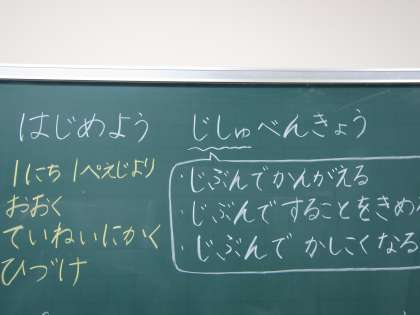 はじめよう じしゅべんきょう
1にち1ぺえじより
おおく
ていねいにかく
ひづけ
・じぶんでかんがえる
・じぶんですることをきめ
・じぶんでかしこくなる